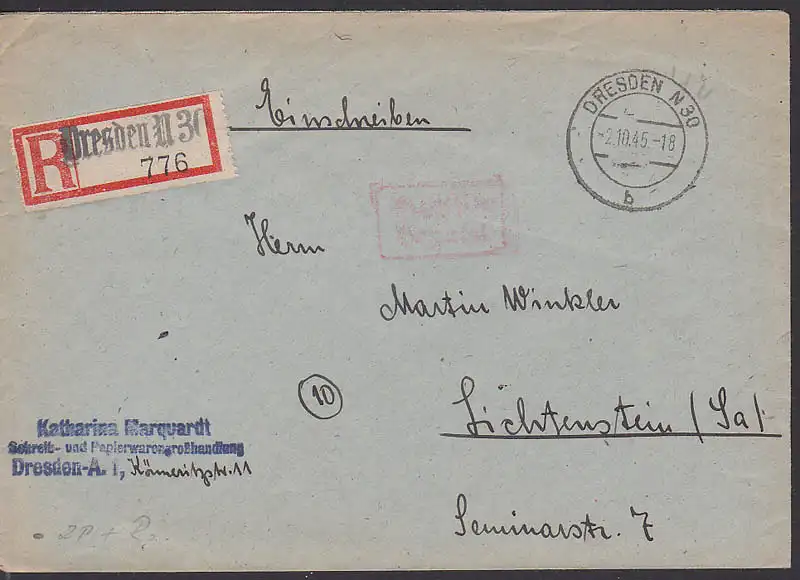 Einschreiben
R Dresden N 30
776
DRESDEN N30
-2.10.45.-18
b
Herrn
Martin Winkler
10
Lichtenstein / Sa /
Katharina Marquardt
Schreib- und Papierwarengroßhandlung
Dresden-A. 1, Könneritzstr. 11
Seminarstr. 7